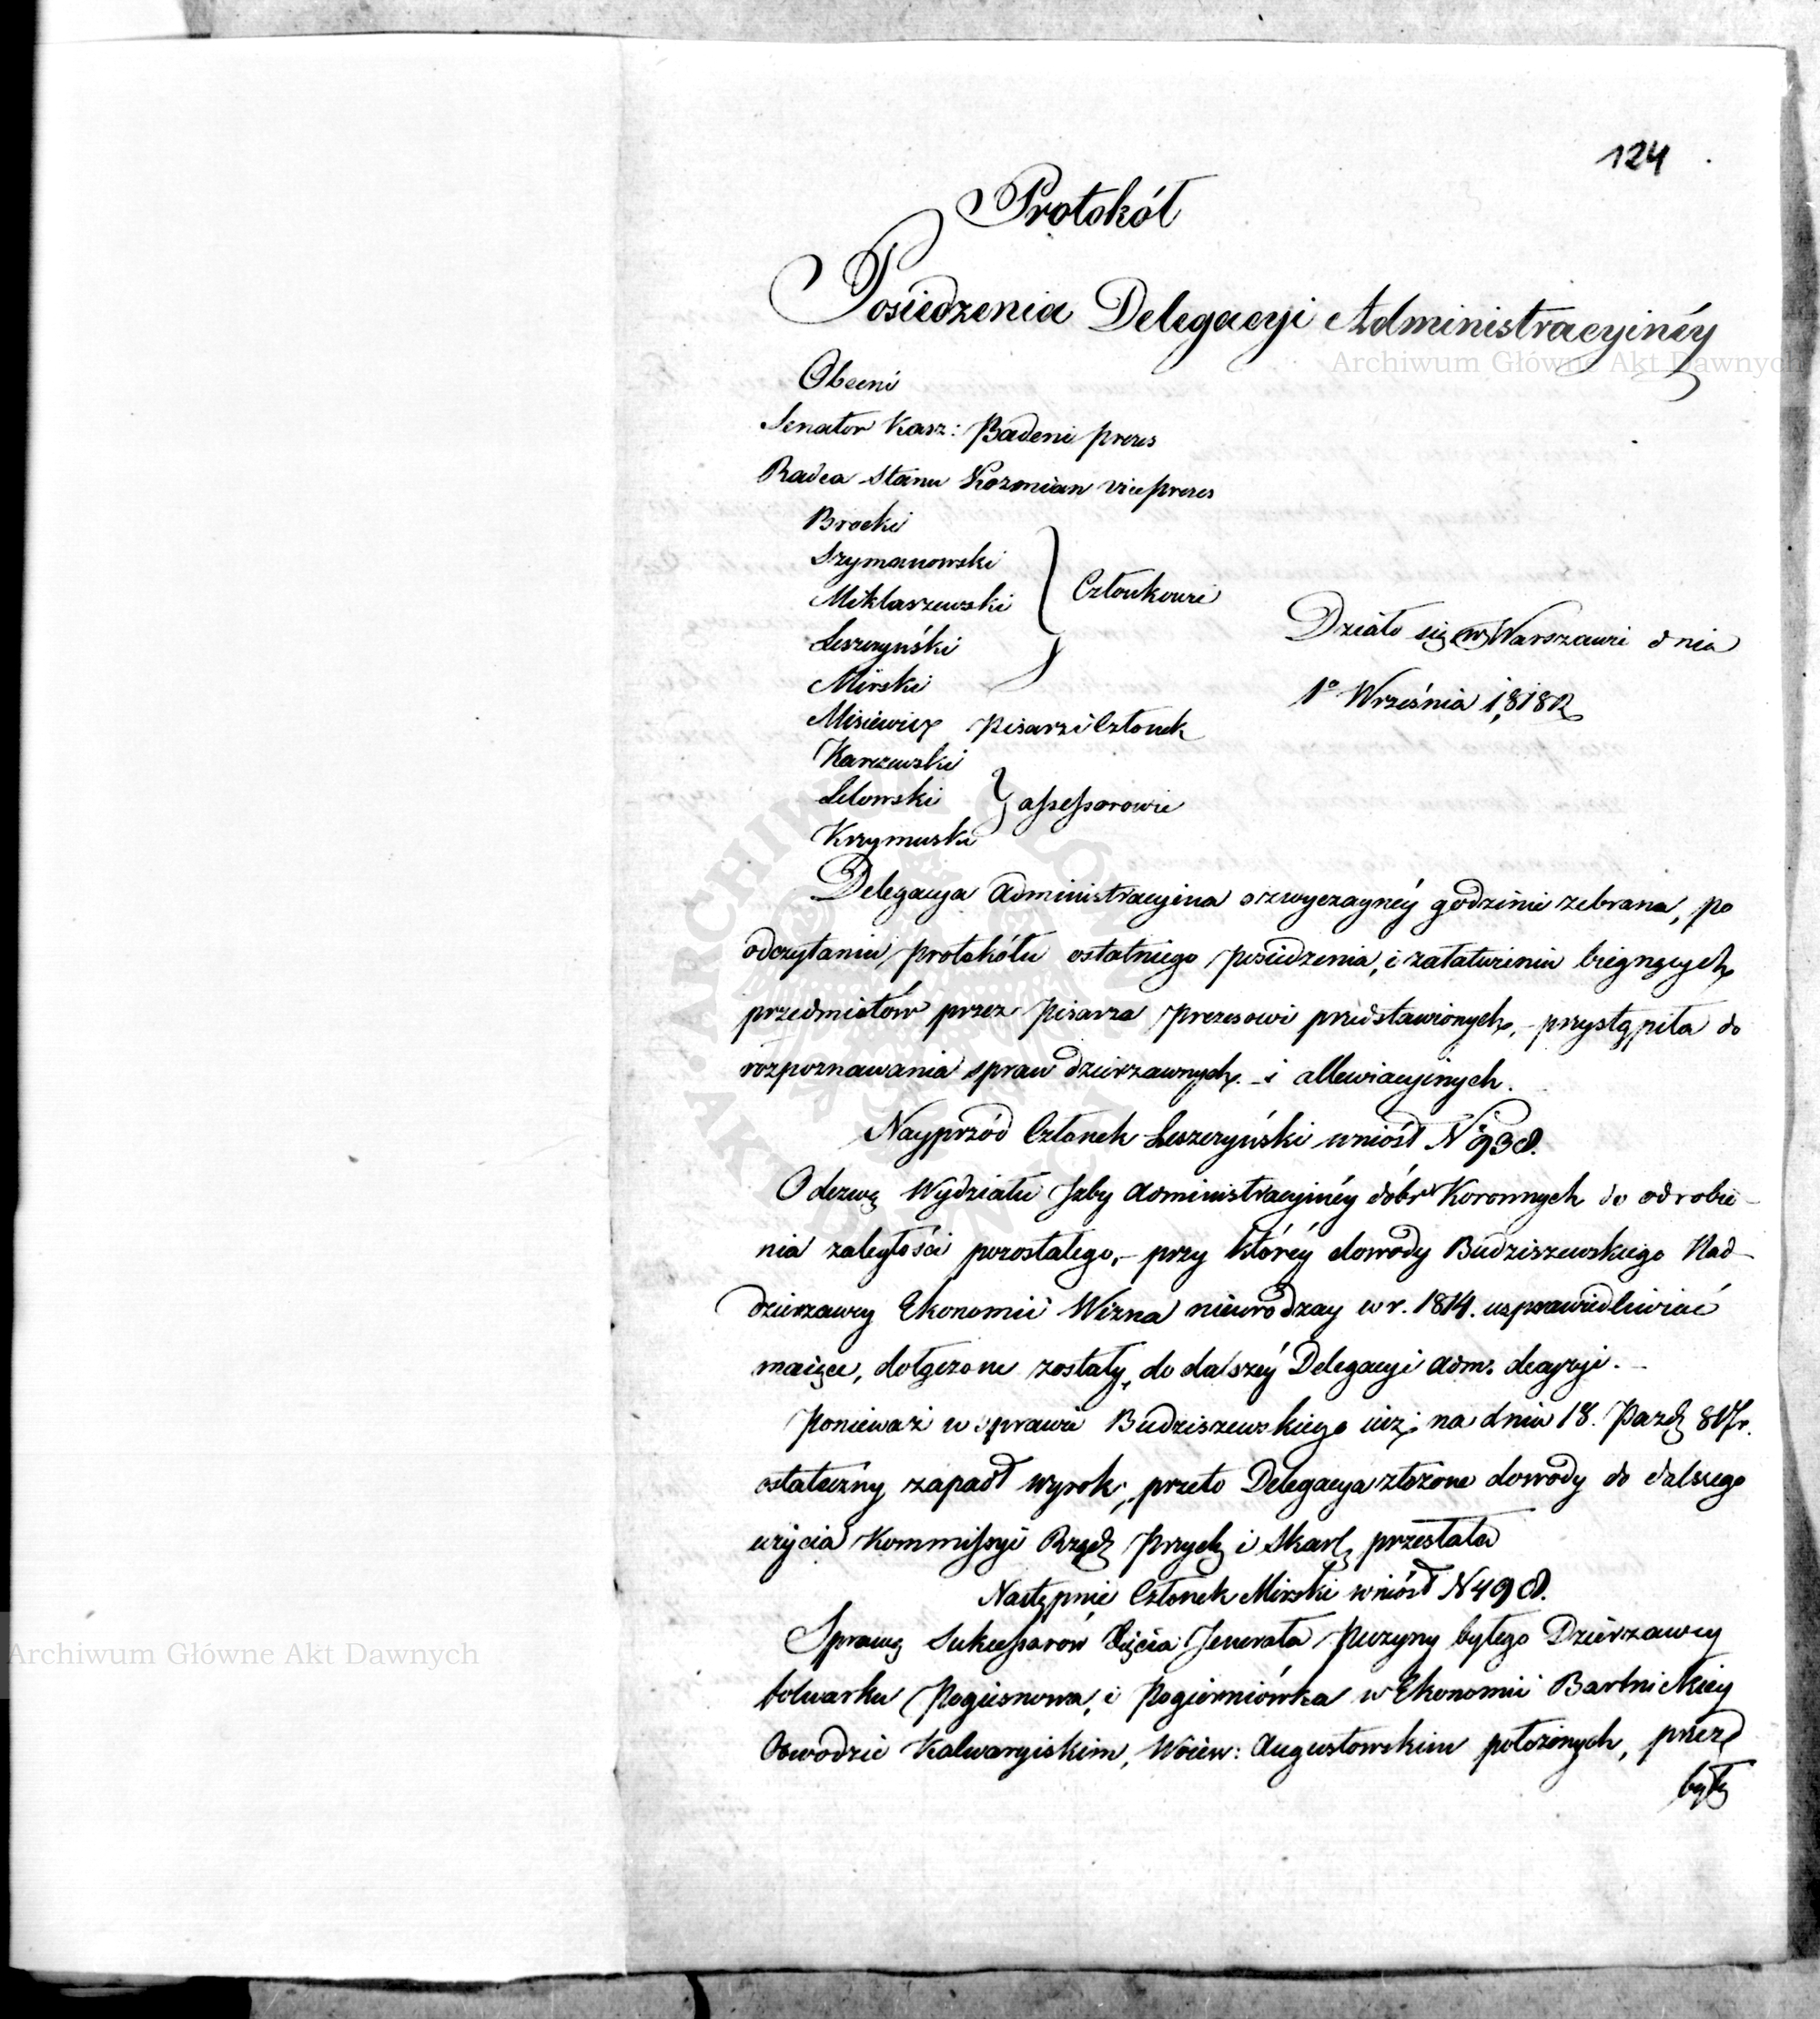 124
Protokół
Posiedzenia Delegacyi Administracyinéy
Obecni
Senator Kasz: Badeni prezes
Radca Stanu Kozmian viceprezes
Brocki
Szymanowski
Miklaszewski
Leszczyński
Mirski
Członkowie
Działo się w Warszawie dnia
1º Września 1818 R
Misiewicz Pisarz i Członek
Karczewski
Lelowski
Krzymuski
assessorowie
Delegacya Administracyina o zwyczayney godzinie zebrana, po
odczytaniu protokółu ostatniego posiedzenia, i załatwieniu biegnących
przedmiotów przez Pisarza Prezesowi przedstawionych, – przystąpiła do
rozpoznawania spraw dzierzawnych – i allewiacyinych.
Nayprzód Członek Leszczyński wniósł Nº 938.
Odezwę Wydziału Izby Administracyinéy dóbr Koronnych do odrobie–
nia zaległości pozostałego, – przy któréy dowody Budziszewskiego Nad–
dzierzawcy Ekonomii Wizna nieurodzay w r. 1814. usprawiedliwiać
maiące, dołączone zostały, do dalszéy Delegacyi adm. decyzyi. –
Ponieważ w sprawie Budziszewskiego iuż na dniu 18. Pazdz 817 r.
ostateczny zapadł wyrok, przeto Delegacya złożone dowody do dalszego
użycia Kommissyi Rządz Przych i Skarb przesłała
Następnie Członek Mirski wniósł N 498.
Sprawę Sukcessorów Xięcia Jenerała Puzyny byłego Dzierzawcy
folwarku Pogiernowa, i Pogierniówka w Ekonomii Bartnickiey
Obwodzie Kalwaryiskim, Woiew: Augustowskim położonych, przez
byłą
Archiwum Główne Akt Dawnych
Archiwum Główne Akt Dawnych
ARCHIWUM GŁÓWNE AKT DAWNYCH